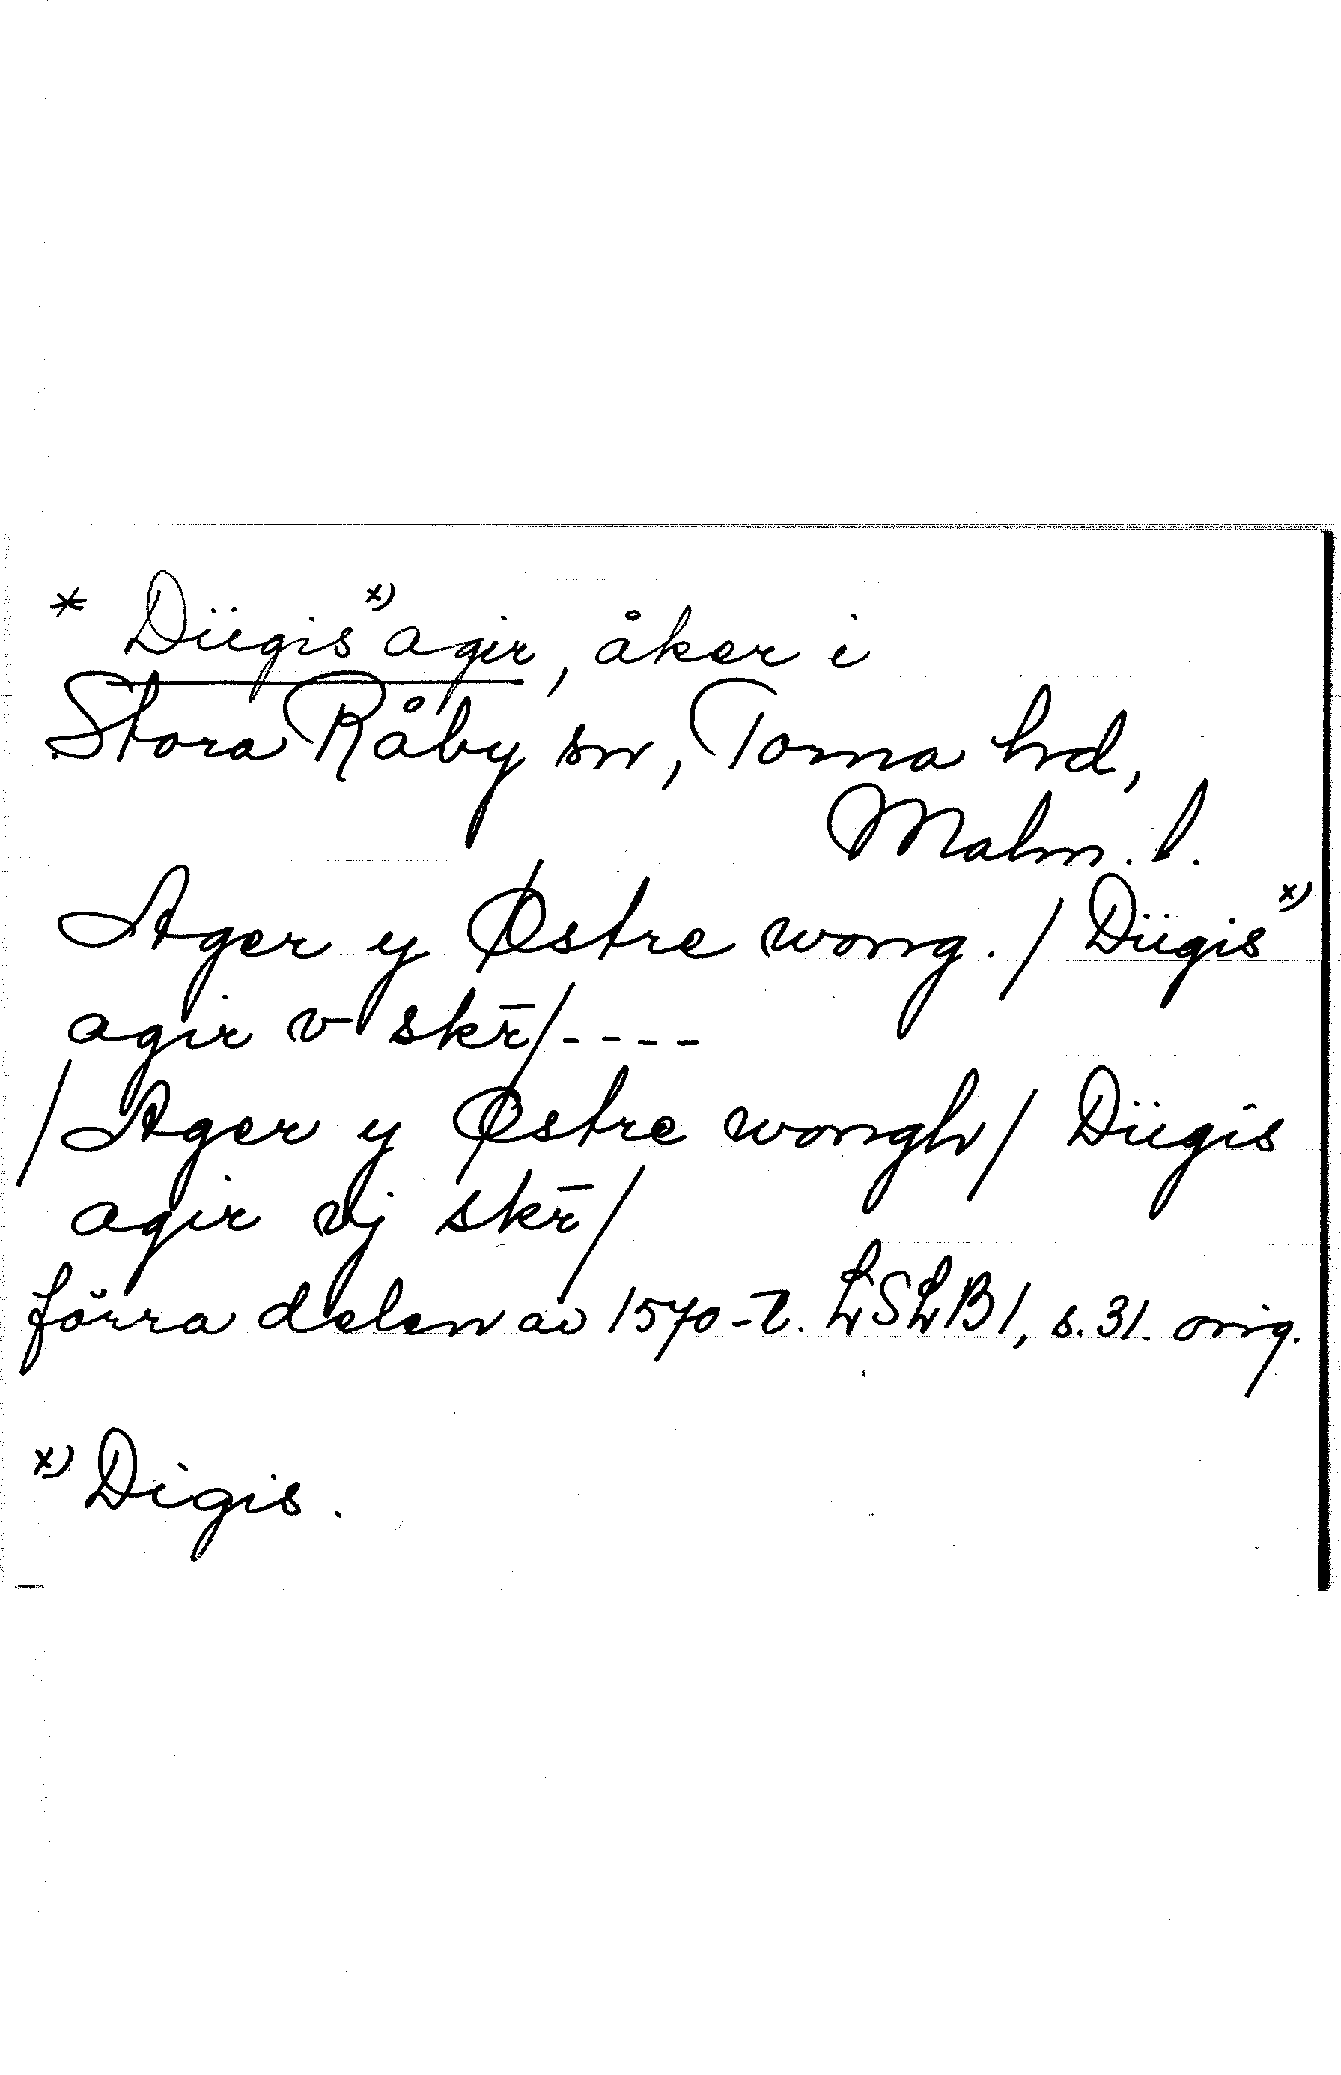 * Düegis x) agir, åker i
Stora Råby sn, Torna hd,
Malm. l.
Ager y Østre wong. / Diigis x)
agir v skr̄/----
/Ager y Østre wongh/ Diigis
agir vj skr̄/
förra delen av 1570-t. LSLB1, s. 31. orig.
x) Digis.